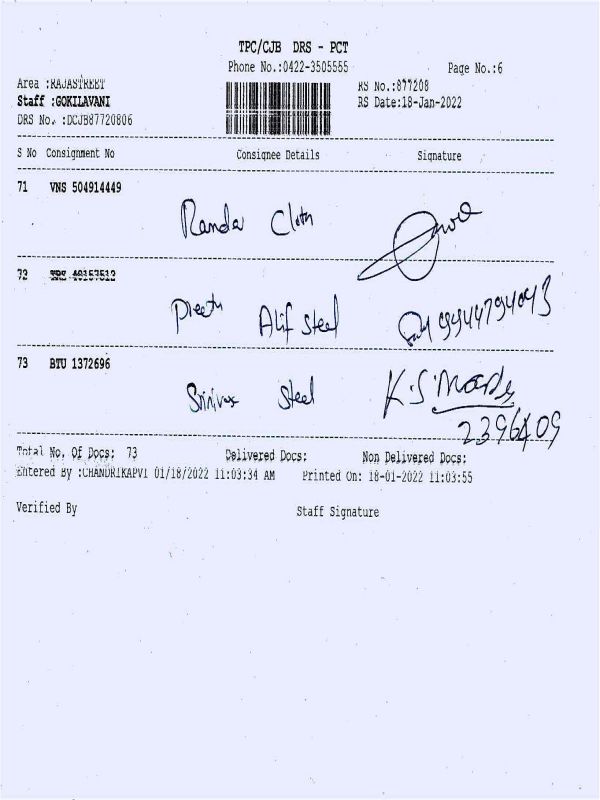 TPC/CJB DRS - PCT
Phone No.:0422-3505555 Page No.:6
Area :RAJASTREET RS No.:877208
Staff :GOKILAVANI RS Date:18-Jan-2022
DRS No. :DCJB87720806
S No Consignment No Consignee Details Signature
71 VNS 504914449
Randa Cloth
72
Preeth Alif Steel 9944794043
73 BTU 1372696
Srinivas Steel K.S.
2396409
Total No. Of Docs: 73 Delivered Docs: Non Delivered Docs:
Entered By :CHANDRIKAPV1 01/18/2022 11:03:34 AM Printed On: 18-01-2022 11:03:55
Verified By Staff Signature